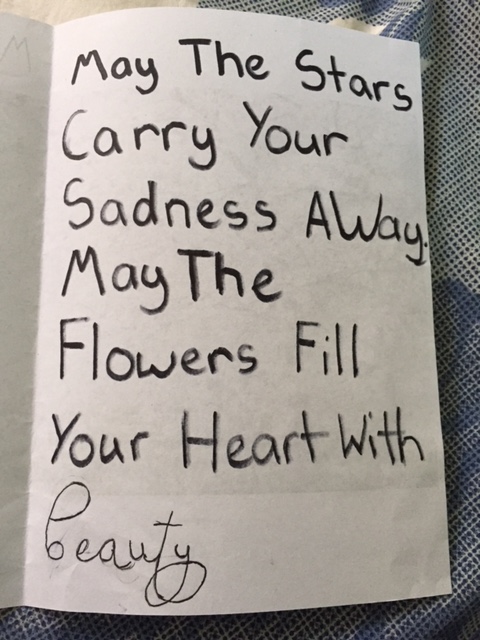 May The Stars
Carry Your
Sadness AWay.
May The
Flowers Fill
Your Heart With
beauty